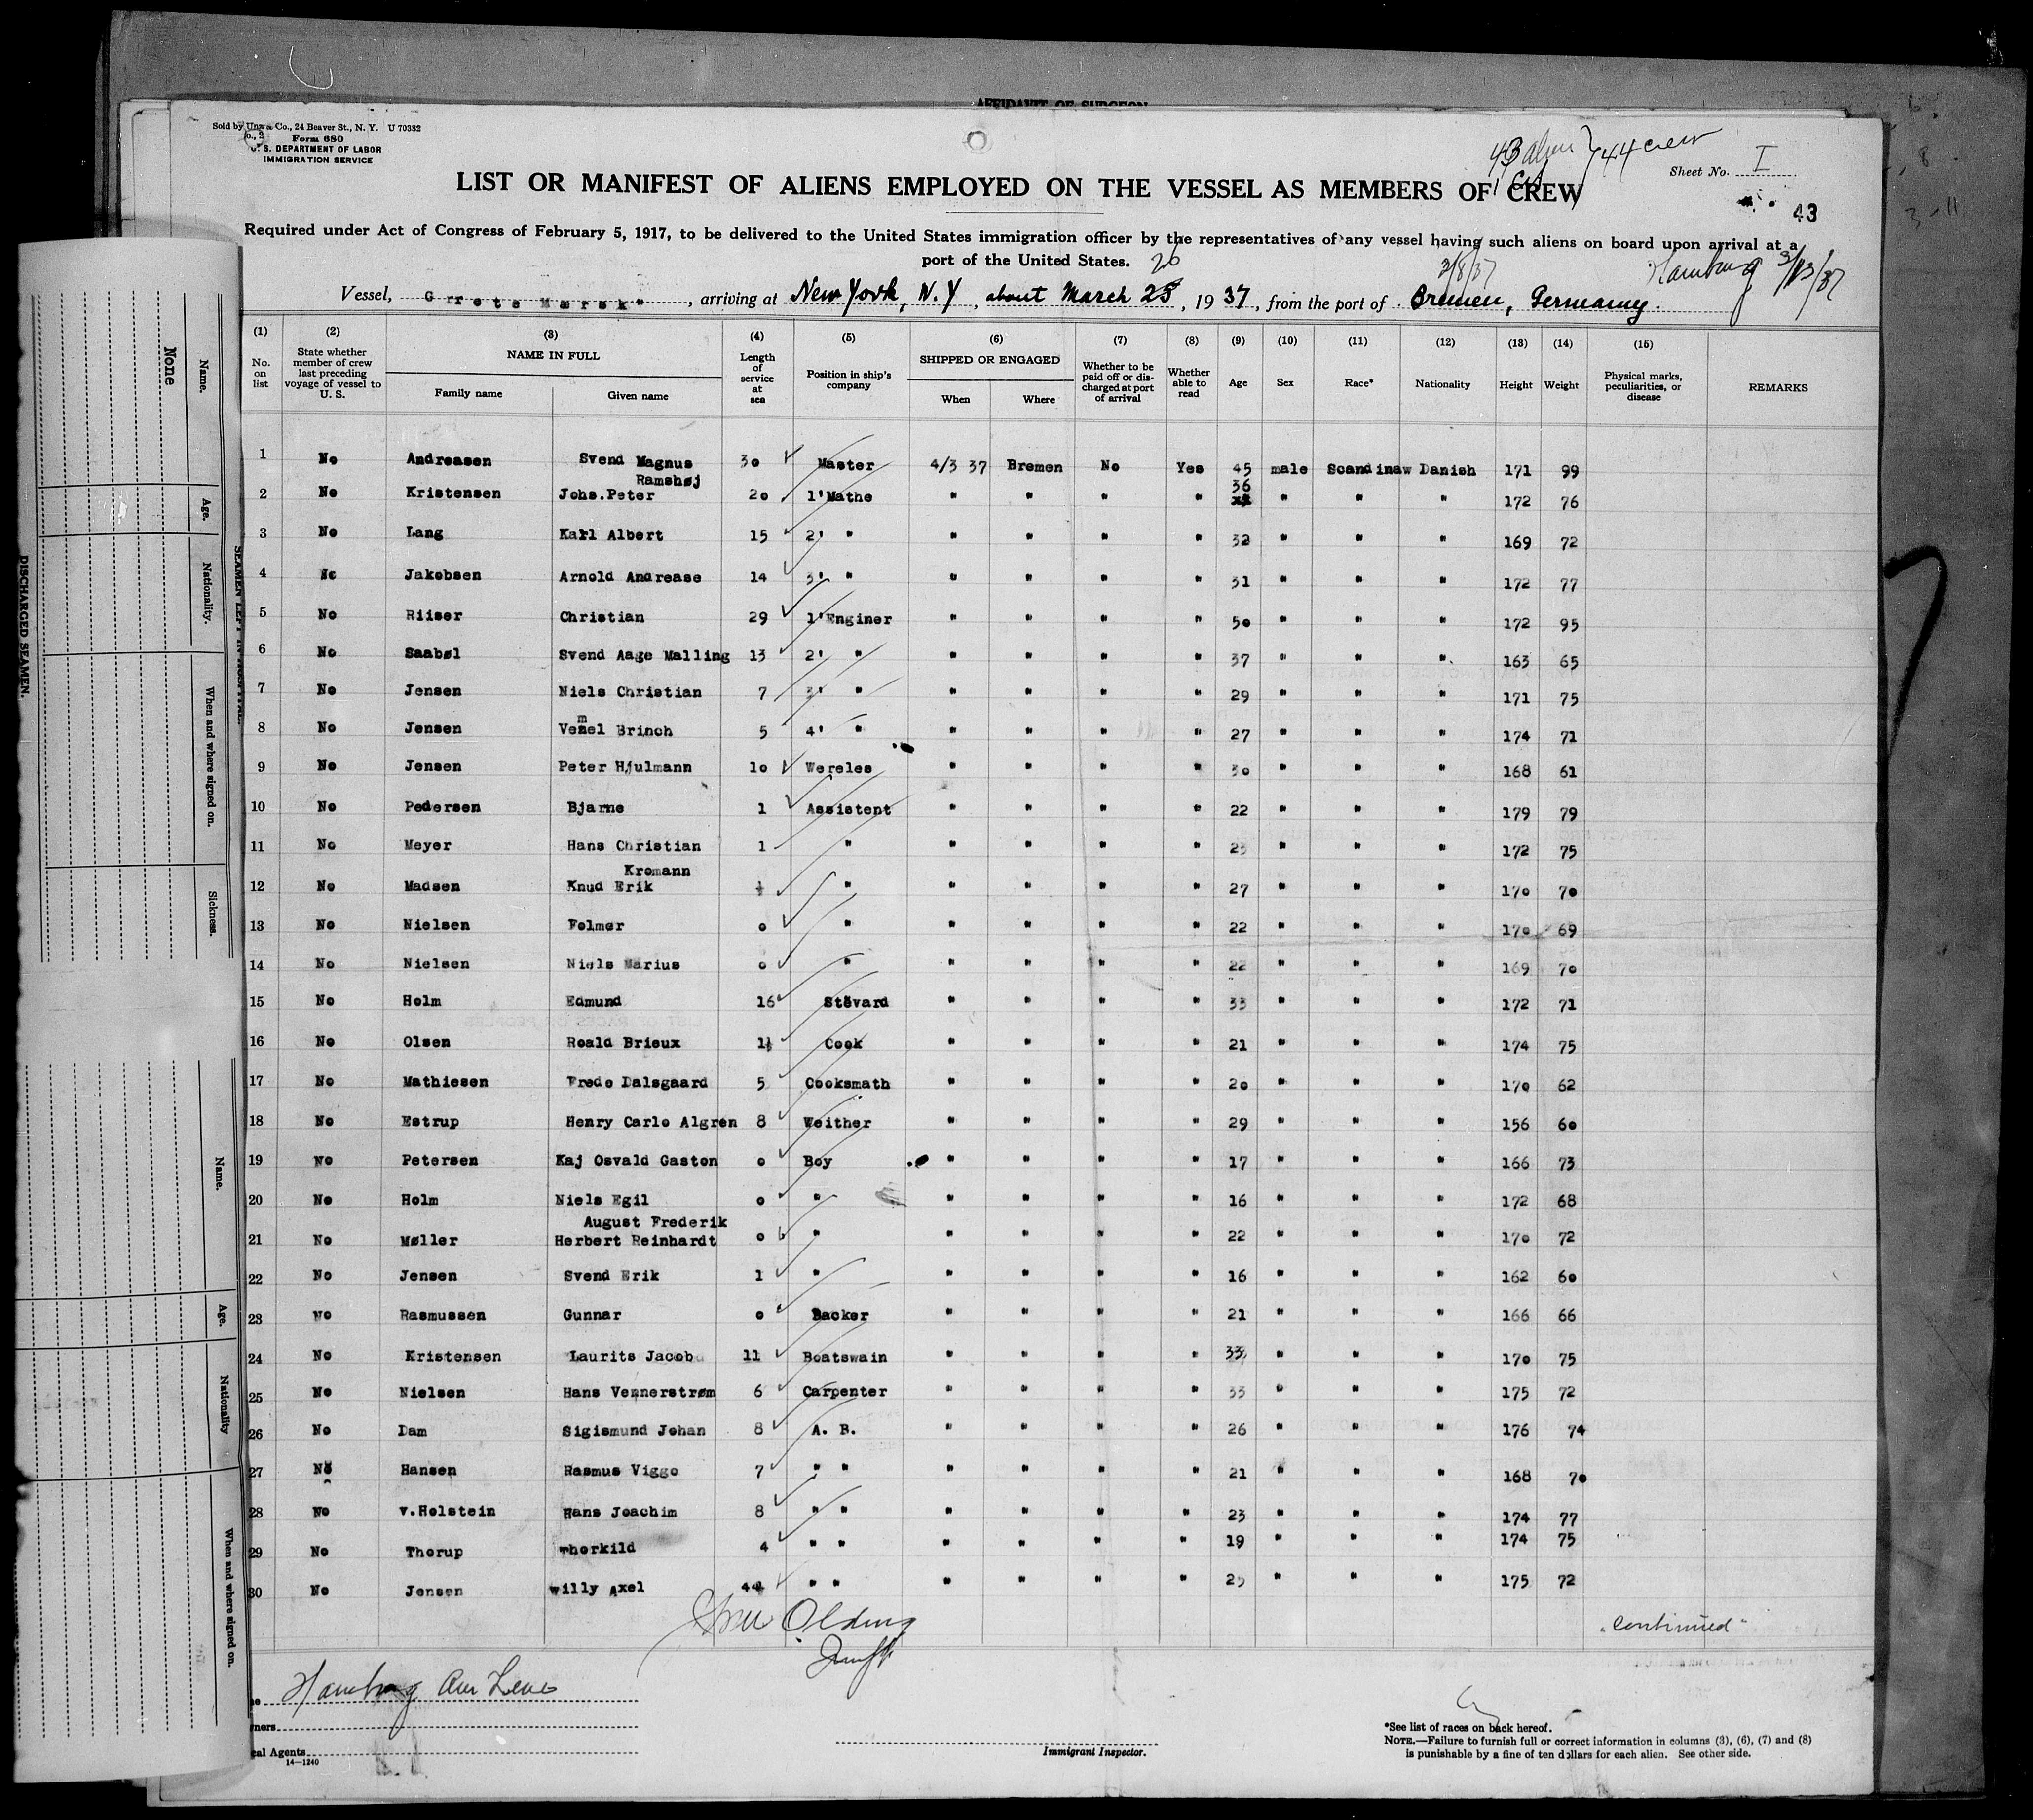 AFFIDAVIT OF SURGEON
Sold by Unz & Co., 24 Beaver St., N. Y. U 70382
Form 680
U. S. DEPARTMENT OF LABOR
IMMIGRATION SERVICE
43 alien 44 crew
Sheet No. I
LIST OR MANIFEST OF ALIENS EMPLOYED ON THE VESSEL AS MEMBERS OF CREW
43
Required under Act of Congress of February 5, 1917, to be delivered to the United States immigration officer by the representatives of any vessel having such aliens on board upon arrival at a
port of the United States. 26 3/8/37 Hamburg 3/13/37
Vessel, Grete Mærsk, arriving at New York, N.Y, about March 25, 1937, from the port of Bremen, Germany.
(1) (2) (3) (4) (5) (6) (7) (8) (9) (10) (11) (12) (13) (14) (15)
No. on list State whether member of crew last preceding voyage of vessel to U. S. NAME IN FULL Family name Given name Length of service at sea Position in ship's company SHIPPED OR ENGAGED When Where Whether to be paid off or discharged at port of arrival Whether able to read Age Sex Race* Nationality Height Weight Physical marks, peculiarities, or disease REMARKS
1 No Andreasen Svend Magnus Ramshøj 30 Master 4/3 37 Bremen No Yes 45 male Scandinaw Danish 171 99
2 No Kristensen Johs.Peter 20 1'Mathe " " " " 36 " " " 172 76
3 No Lang Karl Albert 15 2' " " " " " 32 " " " 169 72
4 No Jakobsen Arnold Andrease 14 3' " " " " " 31 " " " 172 77
5 No Riiser Christian 29 1'Enginer " " " " 50 " " " 172 95
6 No Saabøl Svend Aage Malling 13 2' " " " " " 37 " " " 163 65
7 No Jensen Niels Christian 7 3' " " " " " 29 " " " 171 75
8 No Jensen Vemel Brinch 5 4' " " " " " 27 " " " 174 71
9 No Jensen Peter Hjulmann 10 Wereles " " " " 30 " " " 168 61
10 No Pedersen Bjarne 1 Assistent " " " " 22 " " " 179 79
11 No Meyer Hans Christian 1 " " " " " " " " 172 75
12 No Madsen Kromann Knud Erik ½ " " " " " 27 " " " 170 70
13 No Nielsen Folmer 0 " " " " " 22 " " " 170 69
14 No Nielsen Niels Marius 0 " " " " " 22 " " " 169 70
15 No Holm Edmund 16 Stevard " " " " 33 " " " 172 71
16 No Olsen Roald Brieux 1½ Cook " " " " 21 " " " 174 75
17 No Mathiesen Frede Dalsgaard 5 Cooksmath " " " " 20 " " " 170 62
18 No Estrup Henry Carlo Algren 8 Weither " " " " 29 " " " 156 60
19 No Petersen Kaj Osvald Gaston 0 Boy " " " " 17 " " " 166 73
20 No Holm Niels Egil 0 " " " " " 16 " " " 172 68
21 No Møller August Frederik Herbert Reinhardt 0 " " " " " 22 " " " 170 72
22 No Jensen Svend Erik 1 " " " " " 16 " " " 162 60
23 No Rasmussen Gunnar 0 Backer " " " " 21 " " " 166 66
24 No Kristensen Laurits Jacob 11 Boatswain " " " " 33 " " " 170 75
25 No Nielsen Hans Vennerstrøm 6 Carpenter " " " " 33 " " " 175 72
26 No Dam Sigismund Johan 8 A. B. " " " " 26 " " " 176 74
27 No Hansen Rasmus Viggo 7 " " " " " " 21 " " " 168 70
28 No v.Holstein Hans Joachim 8 " " " " " " 23 " " " 174 77
29 No Thorup Thorkild 4 " " " " " " 19 " " " 174 75
30 No Jensen willy Axel 4 " " " " " " 25 " " " 175 72
"continued"
Hamburg Am Line
Owners
Local Agents
14—1240
Immigrant Inspector.
*See list of races on back hereof.
NOTE.—Failure to furnish full or correct information in columns (3), (6), (7) and (8)
is punishable by a fine of ten dollars for each alien. See other side.
DISCHARGED SEAMEN.
SEAMEN LEFT IN HOSPITAL.
None
Name.
Age.
Nationality.
When and where signed on.
Sickness.
Name.
Age.
Nationality
When and where signed on.